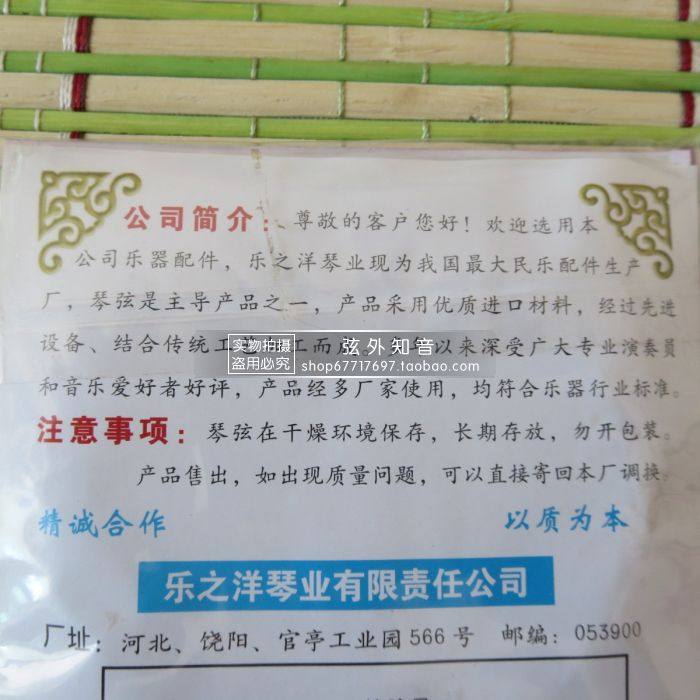 公司简介：尊敬的客户您好！欢迎选用本
公司乐器配件，乐之洋琴业现为我国最大民乐配件生产
厂，琴弦是主导产品之一，产品采用优质进口材料，经过先进
设备、结合传统工艺加工而成。多年以来深受广大专业演奏员
实物拍摄
盗用必究
弦外知音
shop67717697.taobao.com
和音乐爱好者好评，产品经多厂家使用，均符合乐器行业标准。
注意事项：琴弦在干燥环境保存，长期存放，勿开包装。
产品售出，如出现质量问题，可以直接寄回本厂调换。
精诚合作 以质为本
乐之洋琴业有限责任公司
厂址：河北、饶阳、官亭工业园566号 邮编：053900